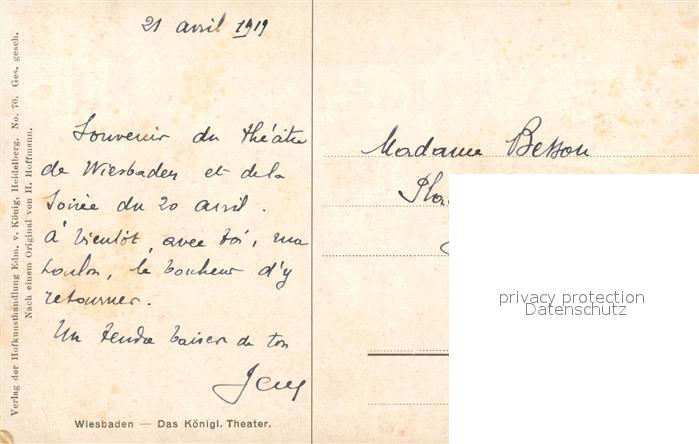 21 avril 1919
Souvenir du théâtre
de Wiesbaden et de la
Soirée du 20 avril.
à bientôt, avec toi, ma
Loulou, le bonheur d'y
retourner.
Un tendre baiser de ton
Wiesbaden — Das Königl. Theater.
Verlag der Hofkunsthandlung Edm. v. König, Heidelberg. No. 70. Ges. gesch.
Nach einem Original von H. Hoffmann.
Madame Besson
privacy protection
Datenschutz